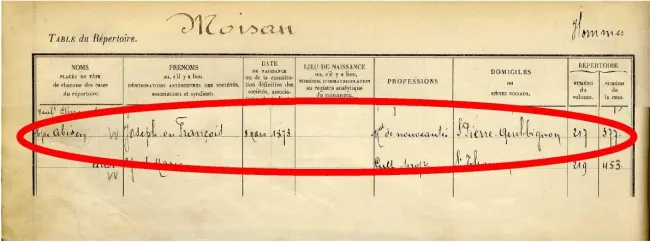 Moisan
Hommes
TABLE du Répertoire.
NOMS
PLACÉS EN TÊTE
de chacune des cases
du répertoire
PRÉNOMS
ou, s'il y a lieu,
DÉNOMINATIONS ANTÉRIEURES DES SOCIÉTÉS,
associations et syndicats.
DATE
DE NAISSANCE
ou de la constitu-
tion définitive des
sociétés, associa-
LIEU DE NAISSANCE
ou, s'il y a lieu,
NUMÉROS D'IMMATRICULATION
au registre analytique
du commerce.
PROFESSIONS
DOMICILES
ou
SIÈGES SOCIAUX.
RÉPERTOIRE
NUMÉRO
du
volume.
NUMÉRO
de
la case.
Joseph ou François
mars 1873
Md de nouveautés
St Pierre-Quilbignon
217
377
Marie
Cult.
219
453